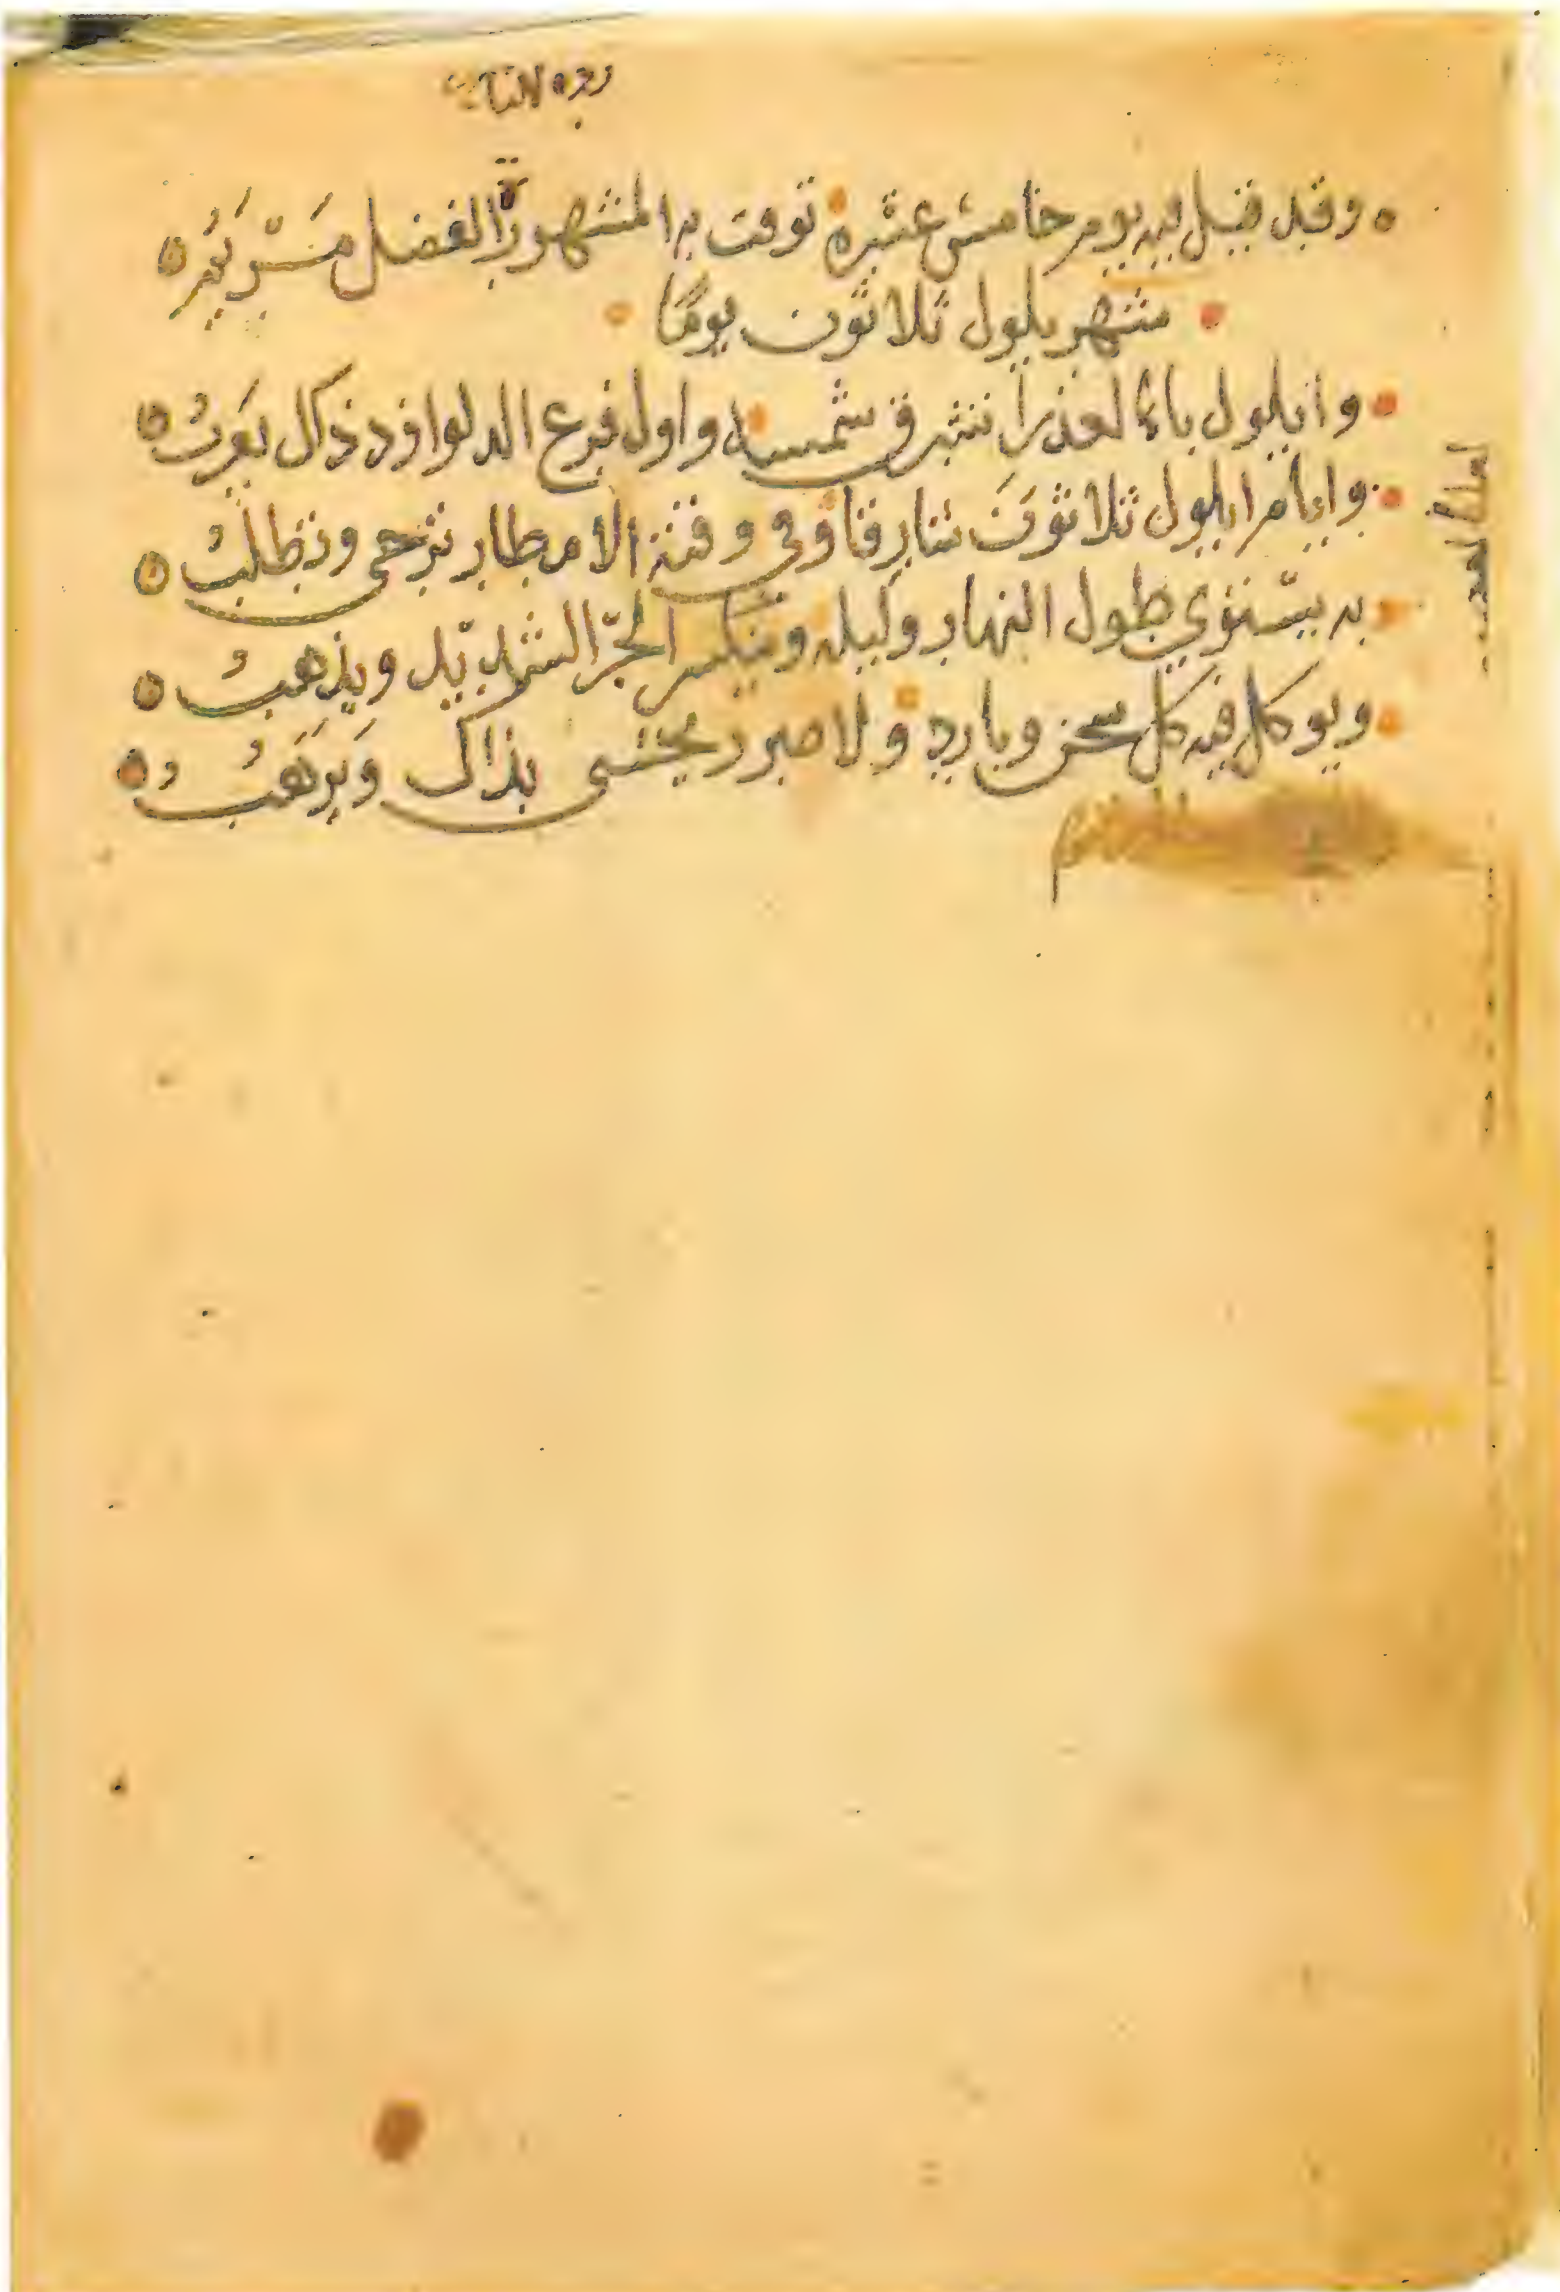 وقد قيل فيه يوم خامس عشره توفت به المشهورة الفضل مَرْيَمُ
شهر يلول ثلاثون يومًا
وايلول باء لعذرا تشرق شمسه واول فرع الدلو اذ ذاك يغربُ
وايام ايلول ثلاثون تنارقا وفي وقته الامطار ترتجى وتطلبُ
به يستوي طول النهار وليله وينكسر الحرّ الشديد ويذهبُ
ويوكل فيه كل سخن وبارد ولا ضرر يختشى بذاك وَيرهَبُ